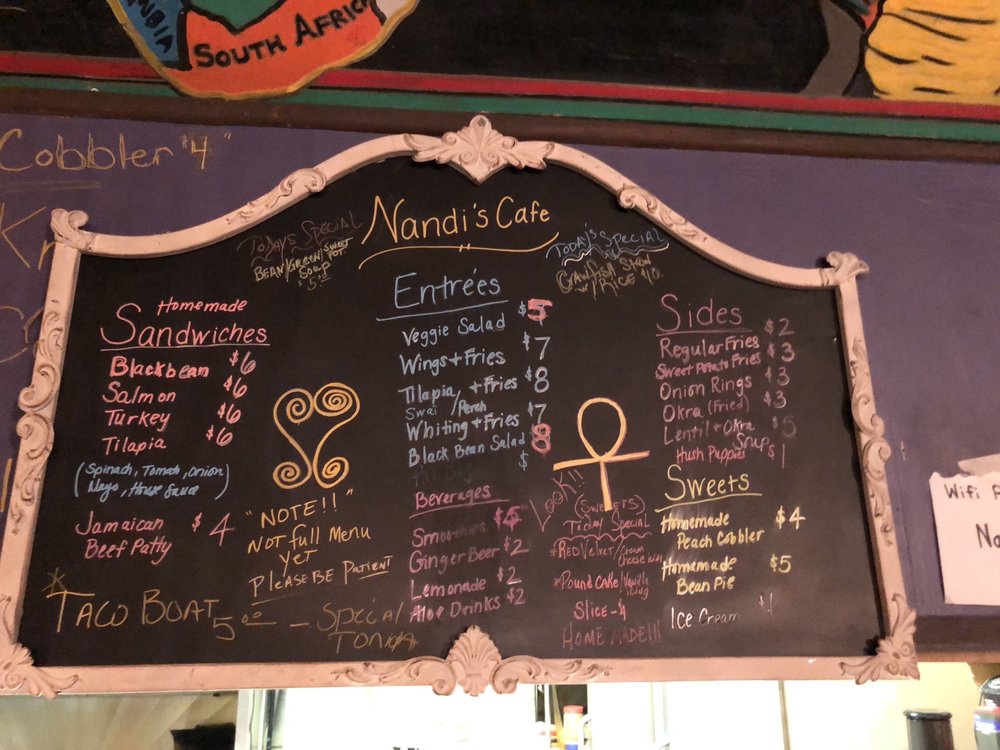 SOUTH AFRICA
Cobbler $4
Nandi's Cafe
TODAY'S SPECIAL
BEAN/GREEN/SWEET POT.
SOUP
5.00
TODAY'S SPECIAL
W/RICE
Homemade
Sandwiches
Blackbean $6
Salmon $6
Turkey $6
Tilapia $6
(Spinach, Tomato, onion
Mayo, House Sauce)
Jamaican $4
Beef Patty
"NOTE!!"
NOT full Menu
yet
PLEASE BE PATIENT
TACO BOAT 5.00 - SPECIAL
Entrées
Veggie Salad $5
Wings + Fries $7
Tilapia, + Fries $8
Swai / Perch
Whiting + Fries $7
Black Bean Salad 8
$
Beverages
Smoothies $5
Ginger Beer $2
Lemonade $2
Aloe Drinks $2
LOOK!!
(SWEETS)
TODAY SPECIAL
*RED VELVET/Cream
Cheese
*POUND CAKE/Vanilla
icing
SLICE - 4
HOME MADE!!!
Sides
Regular Fries $2
Sweet Potato Fries $3
Onion Rings $3
Okra (Fried) $3
Lentil + Okra $5
Soup
Hush Puppies $1
Sweets
Homemade $4
Peach Cobbler
Homamade $5
Bean Pie
Ice Cream $1
Wifi